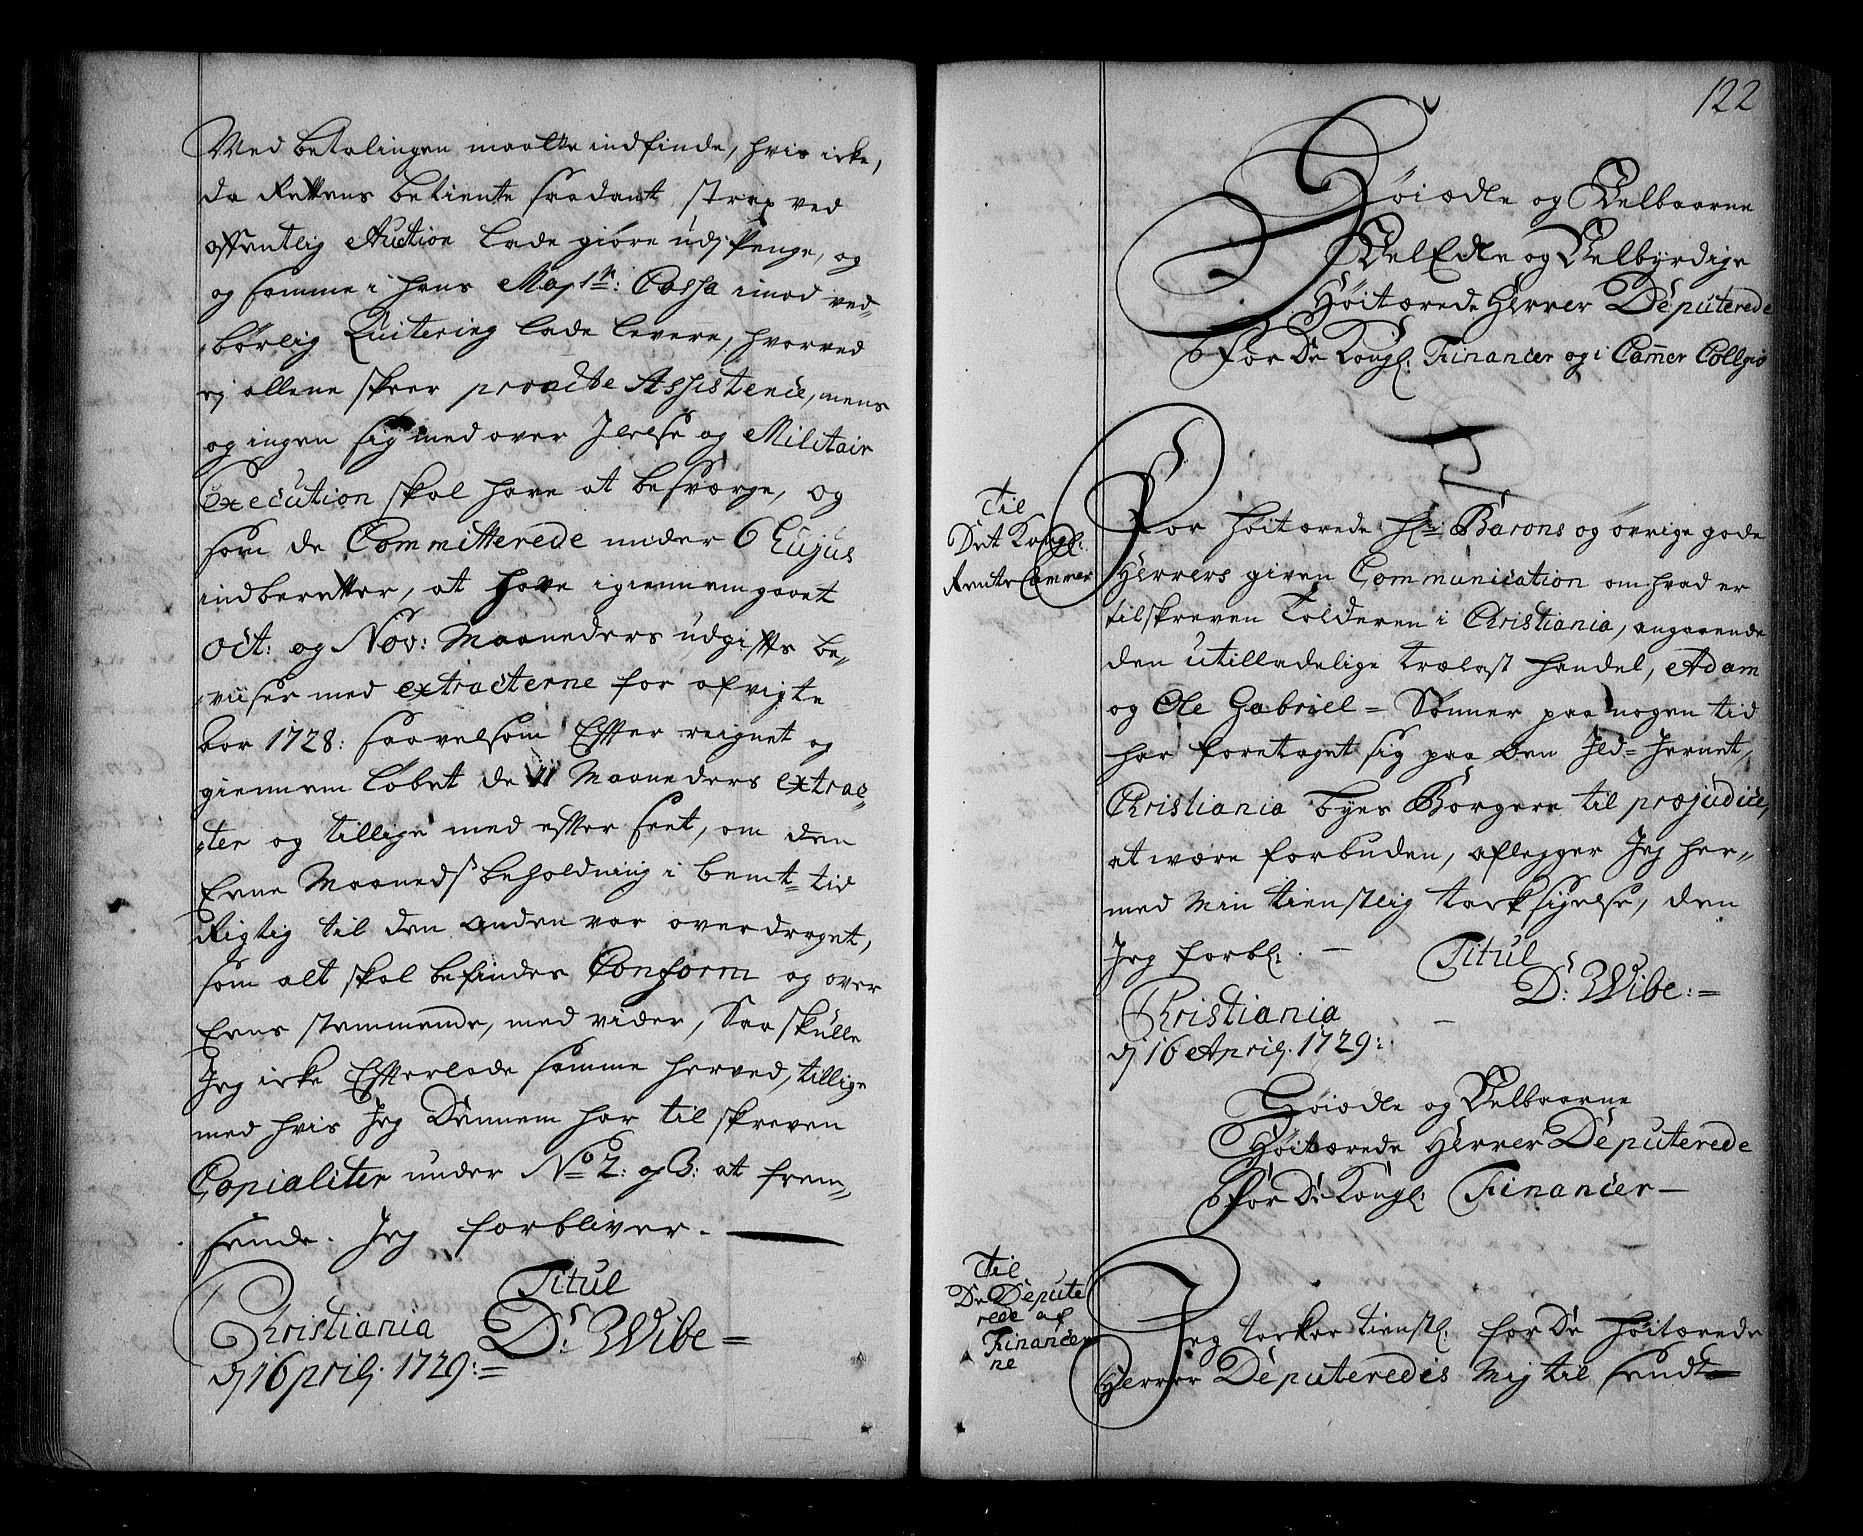 Med betalingen maatte indfinde, hvis icke,
da Rettens betiente saadant strax ved
offentlig Auction lade giøre udj Penge, og
og samme i hans Maj:ts: Cassa imod ved-
børlig Qvitering lade levere, hvorved
ej allene skeer promte Assistence, mens
og ingen sig med over Jlelse og Militair
Execution skal have at besværge, og
som de Committerede under 6 Hujus
indberetter, at have igiennemgaaet
Oct: og Nov: Maaneders udgifts be-
viiser med extracterne for afvigte
Aar 1728: saavelsom Effter reignet og
giennem Løbet de 11 Maaneders extrac-
ter og tillige med effter seet, om den
Eene Maaneds beholdning i bemt: tid
Rigtig til den anden var overdraget,
som alt skal befindes Conform og over
Eens stemmende, med vider, Saa skulle
Jeg icke Efterlade samme herved, tillige
med hvis Jeg Dennem har til skreven
Copialiter under No 2: og 3: at frem-
sende. Jeg forbliver.
Titul
Christiania D: Wibe =
dj 16 pril. 1729: =
122
Høiædle og Velbaarne
VelEdle og Velbyrdige
Høitærede Herrer Deputerede
for De Kongl: Financer og i Cammer Collegio
Til
Det Kongl:
Rente Cammer
For Høitærede Hr: Barons og øvrige gode
Herrers given Communication om hvad er
tilskreven Tolderen i Christiania, angaaende
den utilladelige Trælast handel, Adam
og Ole Gabriel = Sønner paa nogen tid
har foretaget sig paa Den Jld = Jernet,
Christiania Byes Borgere til præjudice,
at være forbuden, aflegger Jeg her-
med Min tienstlig tacksigelse, den
Jeg forbl: . — Titul
D: Wibe: =
Christiania
dj 16 April. 1729:
Høiædle og Velbaarne
Høitærede Herrer Deputerede
For De Kongl: Financer —
Til
De Depute
rede af
Financer
ne
Jeg tacker tienstl: for De Høitærede
Herrer Deputeredes Mig til sendt